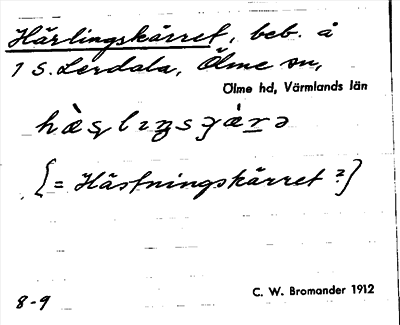 Härlingskärret, beb. å
1 S. Lerdala, Ölme sn,
Ölme hd, Värmlands län
[= Hästningskärret ?]
8-9
C. W. Bromander 1912